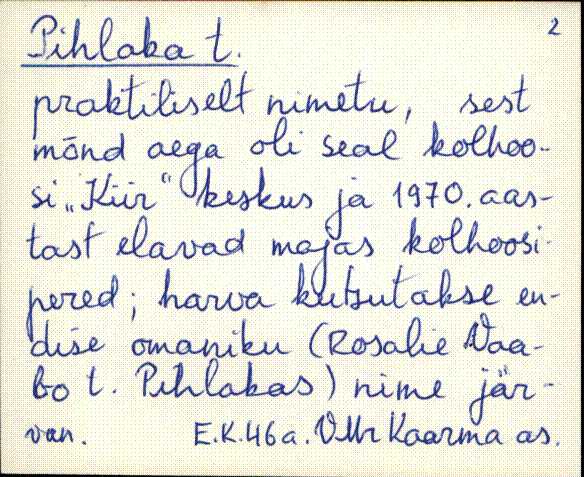 2
Pihlaka t.
praktiliselt nimetu, sest
mõnd aega oli seal kolhoo-
si „Kiir“ keskus ja 1970. aas-
tast elavad majas kolhoosi-
pered; harva kutsutakse en-
dise omaniku (Rosalie Vaa-
bo t. Pihlakas) nime jär-
van. E.K. 46 a. VMr Kaarma as.